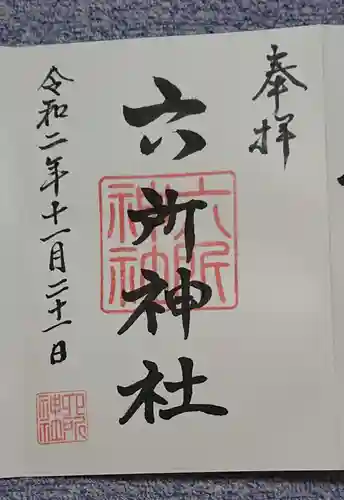 奉拝
六所神社
六所神社
令和二年十一月二十一日
六所神社